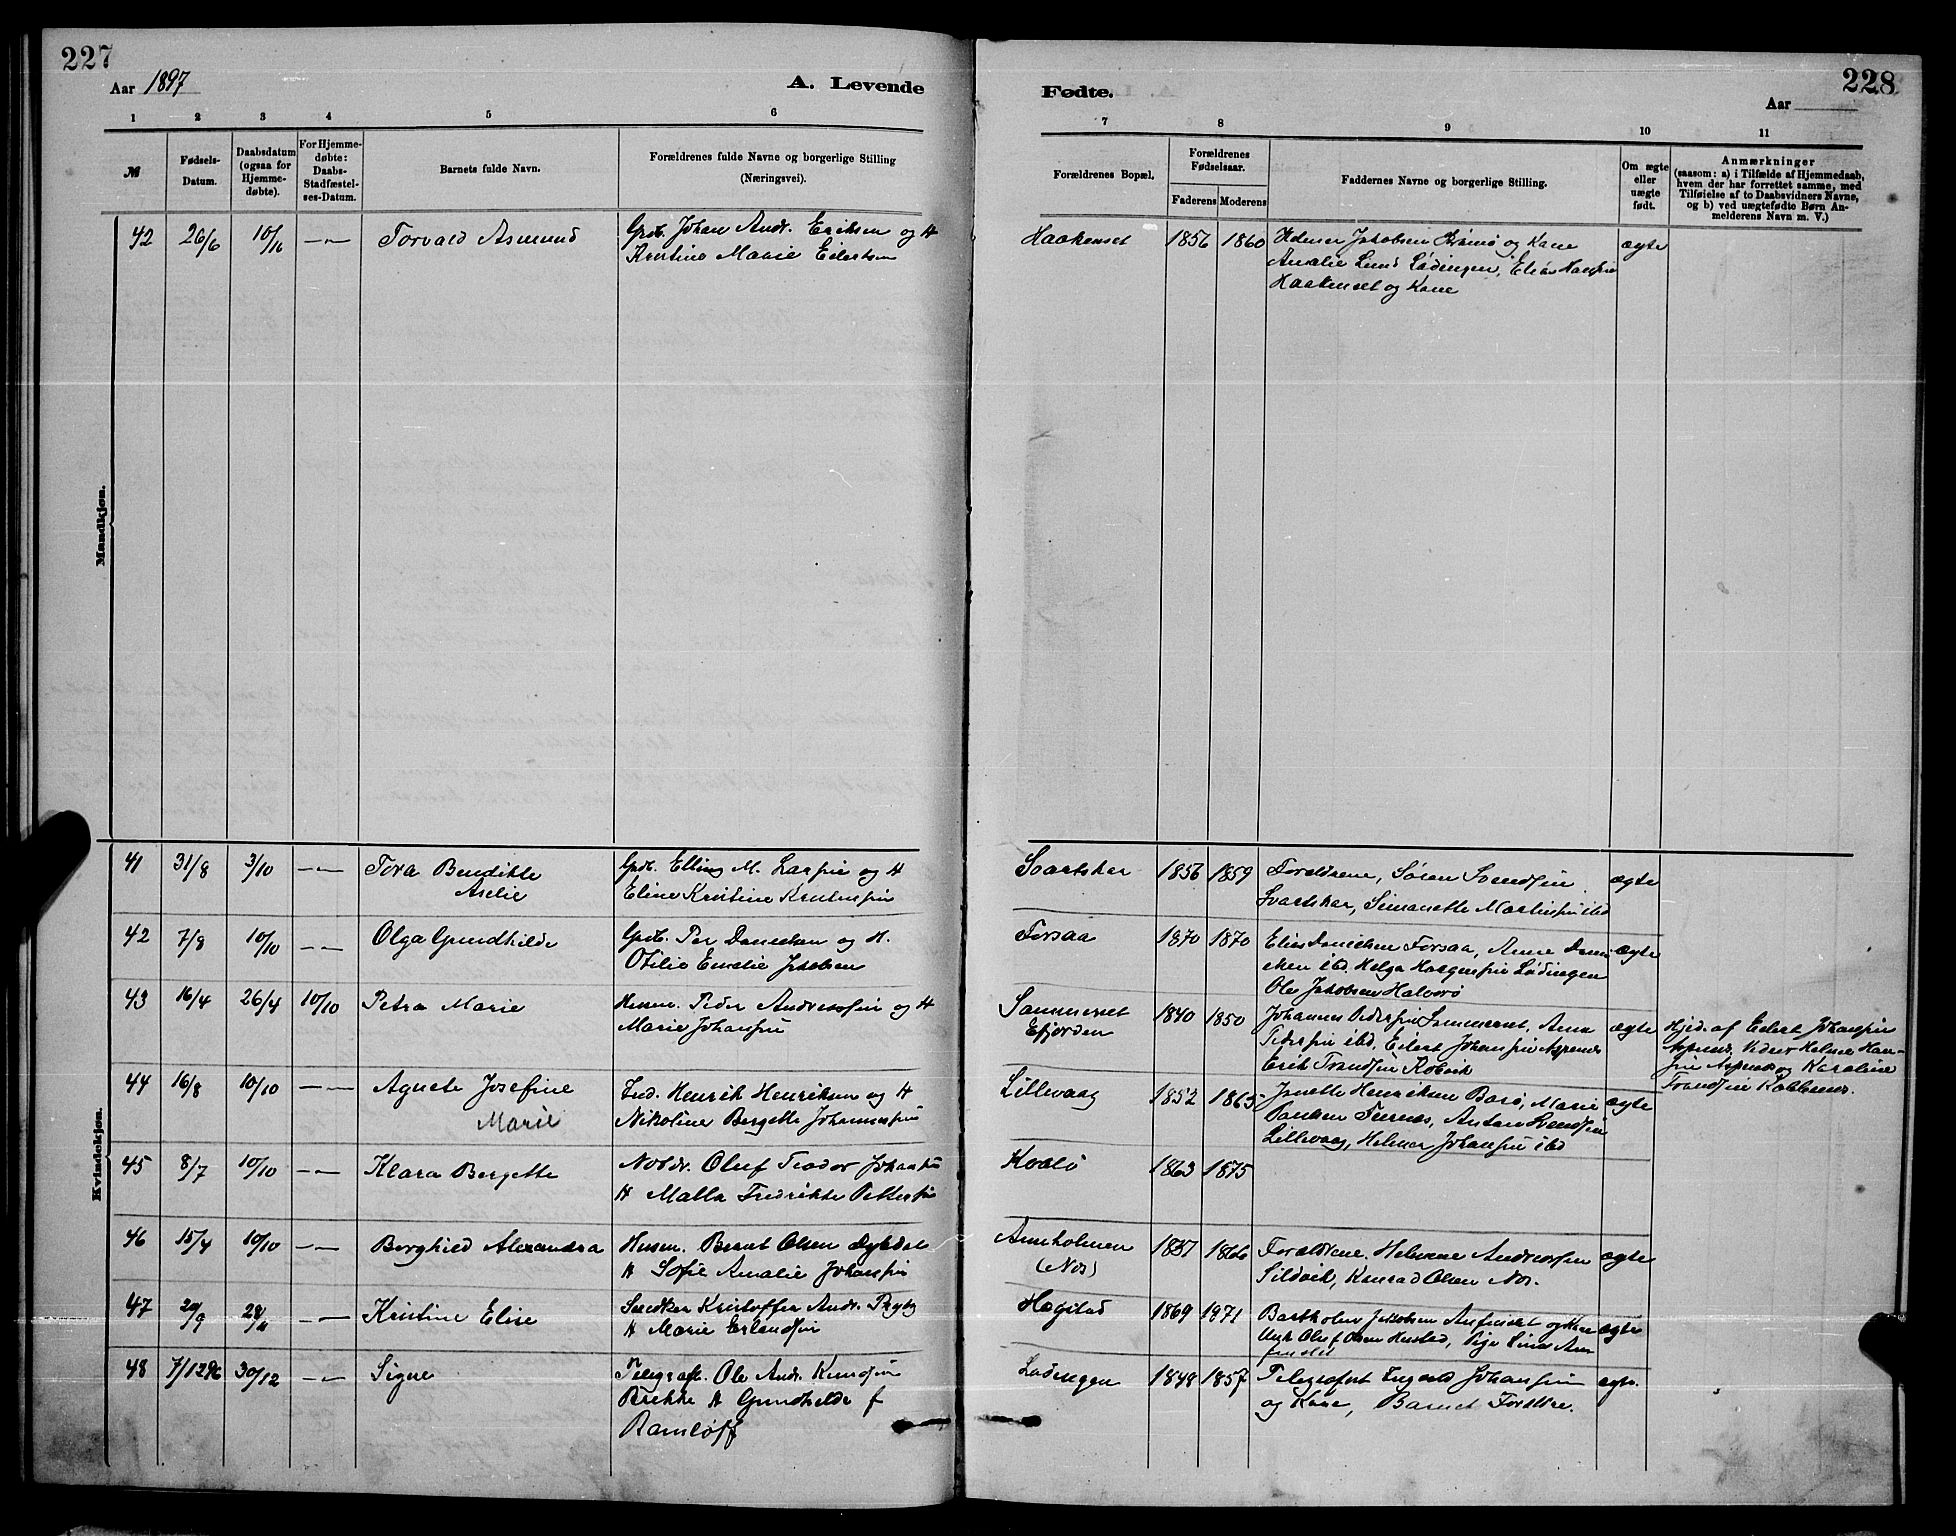 227
Aar 1897
A. Levende
1 2 3 4 5 6
№
Fødsels-
Datum.
Daabsdatum
(ogsaa for
Hjemme-
døbte).
For Hjemme-
døbte:
Daabs-
Stadfæstel-
ses-Datum.
Barnets fulde Navn.
Forældrenes fulde Navne og borgerlige Stilling
(Næringsvei).
Mandkjøn.
42 26/6 10/10 —„— Torvald Asmund Gpdb. Johan Andr. Eriksen og H
Kristine Marie Eilertsen
Kvindekjøn.
41 31/8 3/10 —„— Tora Bendikte Gpdb. Elling M. Larsen og H
Aselie Eline Kristine Kristensen
42 7/8 10/10 —„— Olga Gundhilde Gpdb. Per Danielsen og H.
Otilie Emelie Jakobsen
43 16/4 26/4 10/10 Petra Marie Husm. Peder Andreassen og H
Marie Johansen
44 16/8 10/10 —„— Agnete Josefine Ind. Henrik Henriksen og H
Marie Nikoline Bergette Johannessen
45 8/7 10/10 —„— Klara Bergette Oluf Teodor Johansen
H Malla Fredrikke Pettersen
46 15/4 10/10 —„— Borghild Alexandra Husm. Bernt Olsen
H Sofie Amalie Johansen
47 29/9 28/11 —„— Kristine Elise Snedker Kristoffer Andr. Rygg
H Marie Erlandsen
48 7/12 96 30/12 —„— Signe Telegrafb. Ole Andr. Knudsen
Brekke H Gundhilde f
Ramløff
228
Fødte.
Aar
7 8 9 10 11
Forældrenes Bopæl.
Forældrenes
Fødselsaar.
Faderens Moderens
Faddernes Navne og borgerlige Stilling.
Om ægte
eller
uægte
født.
Anmærkninger
(saasom: a) i Tilfælde af Hjemmedaab,
hvem der har forrettet samme, med
Tilføielse af to Daabsvidners Navne,
og b) ved uægtefødte Børn An-
melderens Navn m. V.)
Haakenset 1856 1860 Jakobsen og Kone ægte
Amalie Lund Lødingen, Elias Hansen
Haakenset og Kone
Svartskar 1856 1859 Forældrene, Søren Svendsen ægte
Svartskar, Simonette Martinsen ibd
Forsaa 1870 1870 Elias Danielsen Forsaa, Anne Dani- ægte
elsen ibd. Helga Haagensen Lødingen
Ole Jakobsen Halvarø
Sammenset 1840 1850 Johannes Pedersen Sammenset, Anna ægte Hjed. af Eilert Johansen
Efjorden Pedersen ibd, Eilert Johansen Aspenes Aspenes. Vidner Helmer Han-
Erik Trondsen Kobvik sen Aspenes og Karoline
Trondsen Kobbenes.
Lillevaag 1852 1865 Janette Henriksen Barø, Marie ægte
Paulsen Furnes, Anton Svendsen
Lillevaag, Helmer Johansen ibd
Kvalø 1863 1875
Annholmen 1857 1866 Forældrene. Helmine Andreassen ægte
(Nes) Sildvik, Konrad Olsen Nes.
Hegstad 1869 1971 Bartholm Jakobsen Anfinslet og Kone ægte
Ungk Oluf Olsen Husted, Pige Lina An-
finslet
Lødingen 1848 1857 Telegrafist Ingvald Johansen ægte.
og Kone, Barnets Forældre.